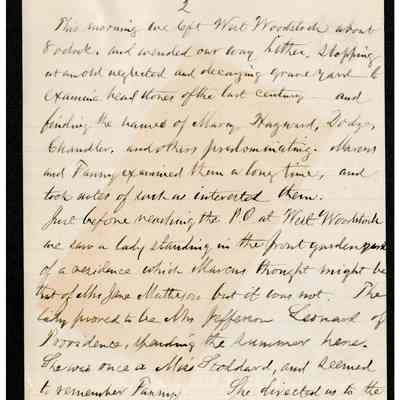 2
This morning we left West Woodstock about
8 oclock, and wended our way hither, stopping
at an old neglected and decaying grave yard to
examine head stones of the last century and
finding the names of Marcy, Hayward, Dodge,
Chandler, and others predominating. Marcus
and Fanny examined them a long time, and
took notes of such as interested them.
Just before reaching the P.O. at West Woodstock
we saw a lady standing in the front garden
of a residence which Marcus thought might be
that of Mrs Jane Matheson but it was not. The
lady proved to be Mrs Jefferson Leonard of
Providence, spending the summer here.
She was once a Miss Goddard, and seemed
to remember Fanny She directed us to the